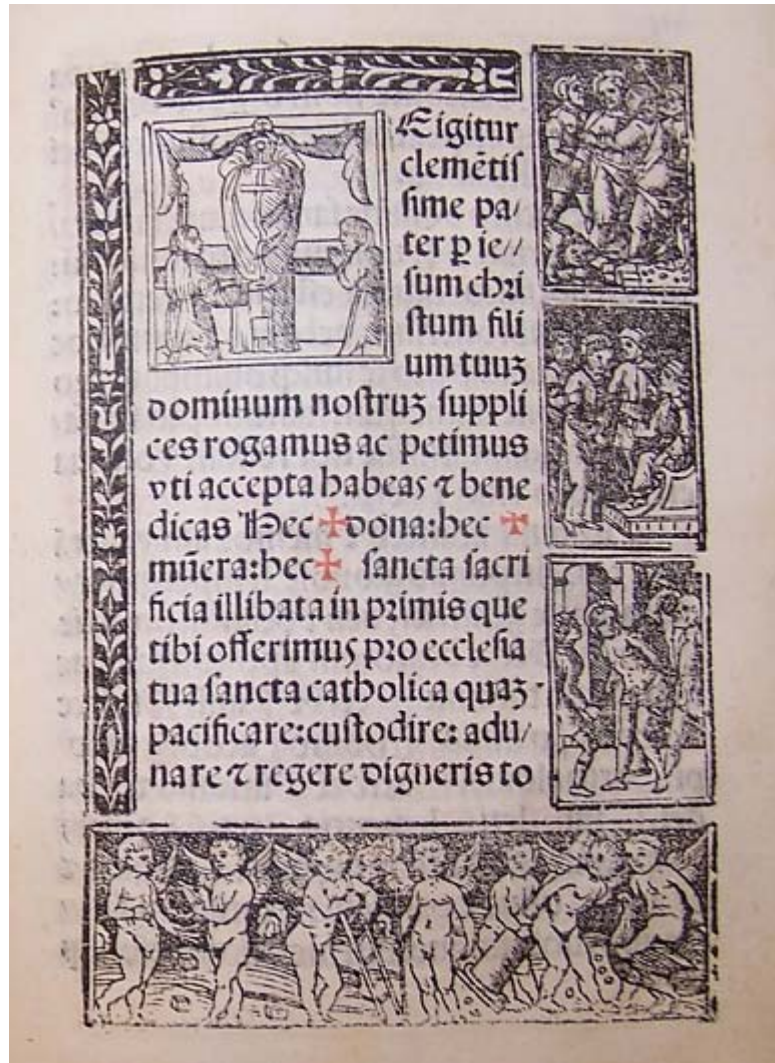 Eigitur
clemētiſ
ſime pa/
ter ꝑ ie//
ſum chꝛi
ſtum fili
um tuuȝ
dominum noſtruȝ ſuppli
ces rogamus ac petimus
vti accepta habeas ⁊ bene
dicas Hec ✠dona:hec ✠
mūera:hec✠ ſancta ſacri
ficia illibata in pꝛimis que
tibi offerimus pꝛo eccleſia
tua ſancta catholica quaȝ
pacificare:cuſtodire: adu/
nare ⁊ regere digneris to